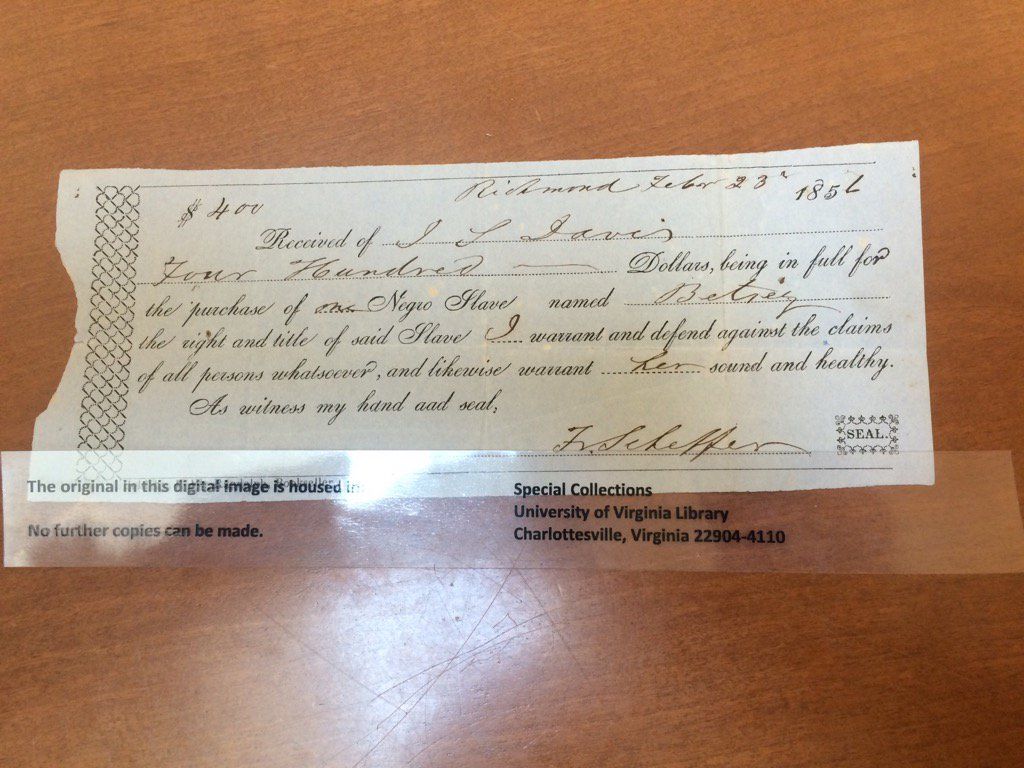 Richmond Febr 23d 1856
$ 400
Received of J S Davis
Four Hundred — Dollars, being in full for
the purchase of one Negro Slave named Betsey
the right and title of said Slave I warrant and defend against the claims
of all persons whatsoever, and likewise warrant her sound and healthy.
As witness my hand aad seal,
Fr. Scheffer
SEAL.
The original in this digital image is housed in:
No further copies can be made.
Special Collections
University of Virginia Library
Charlottesville, Virginia 22904-4110